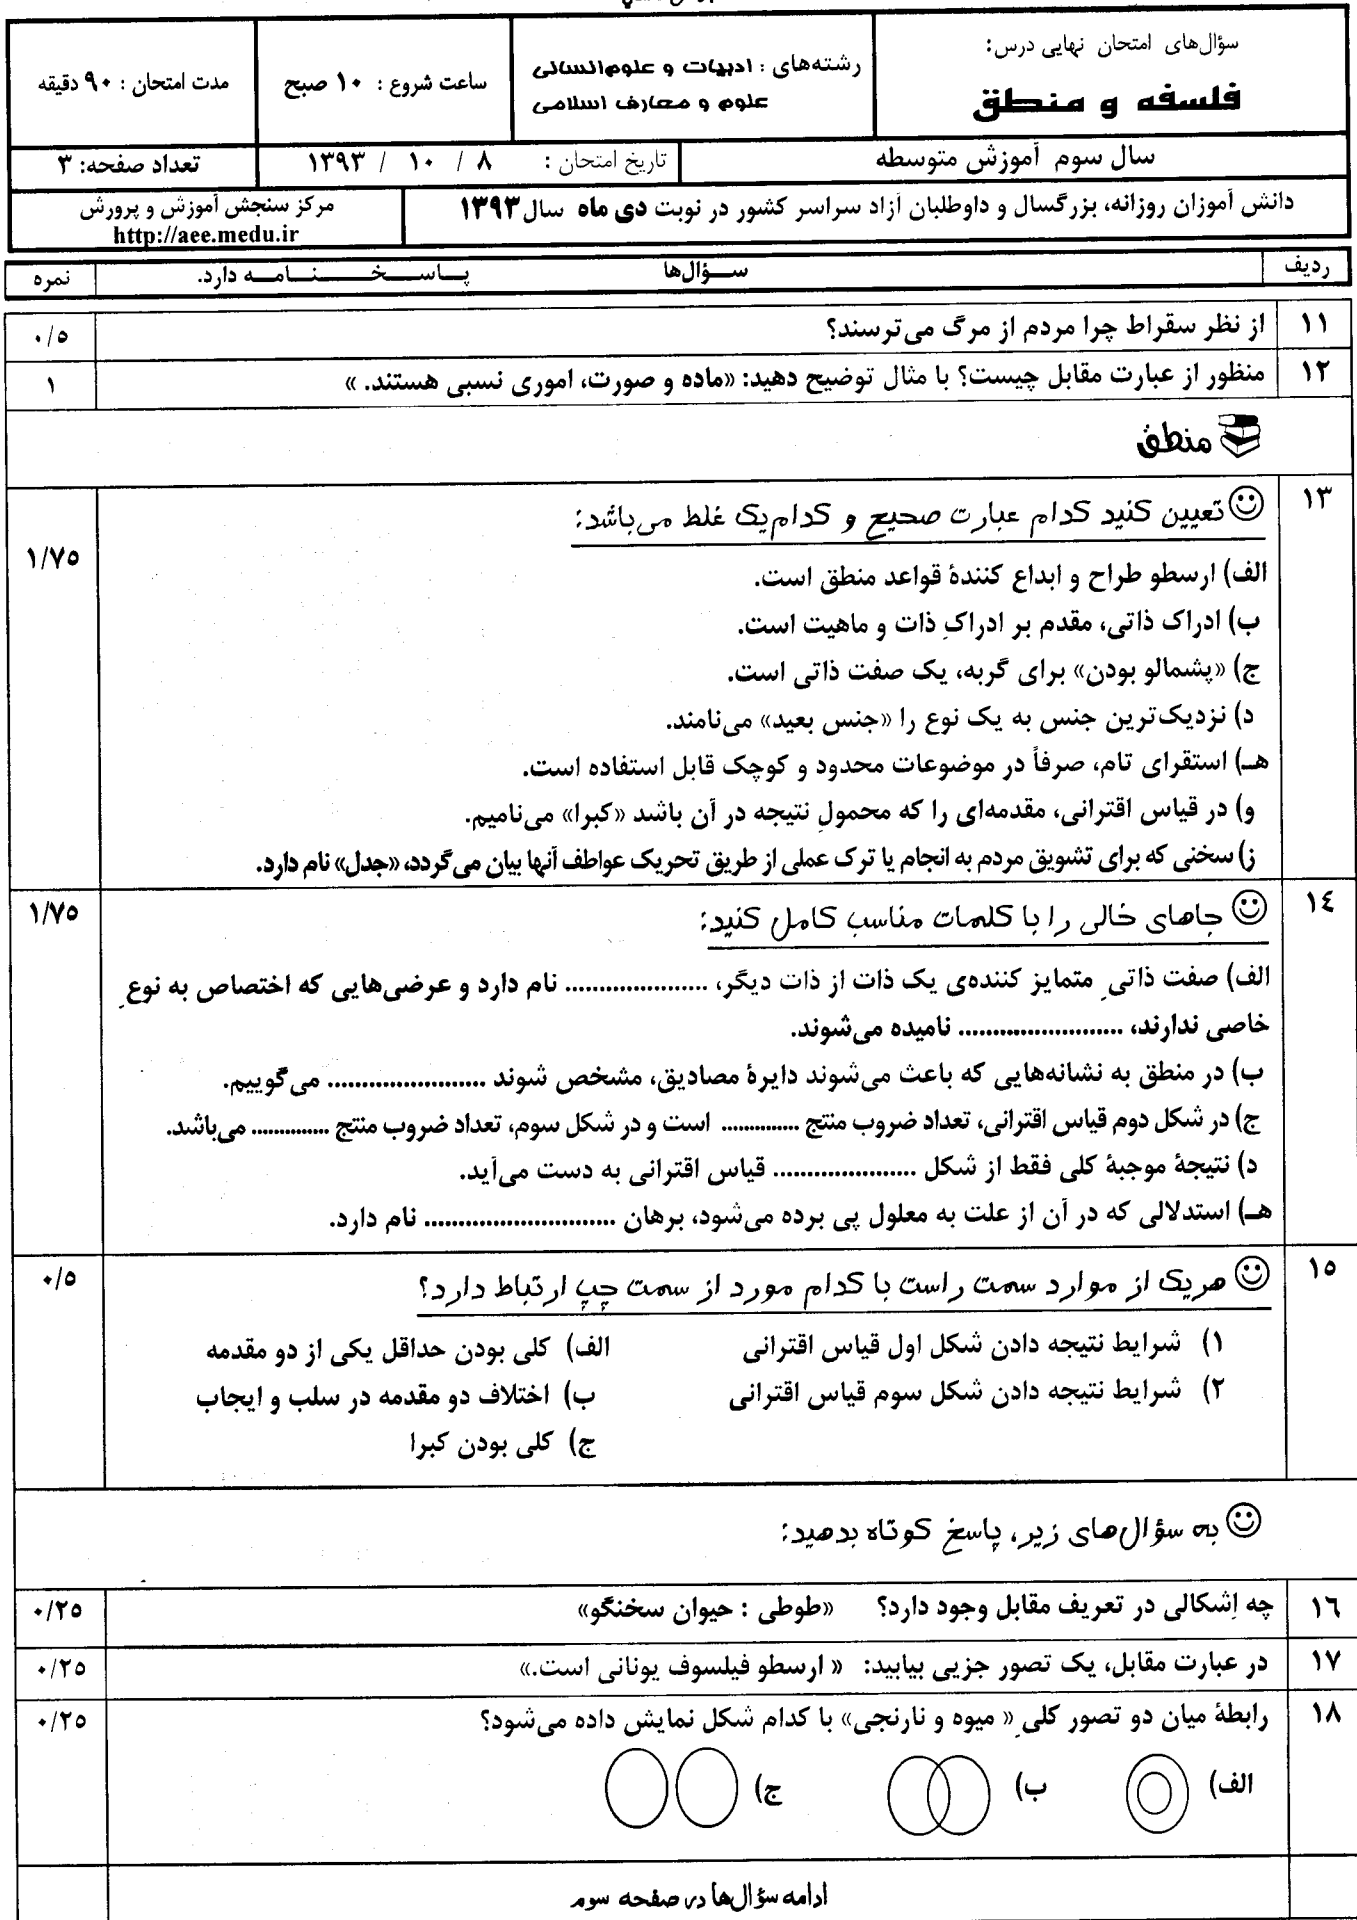 سؤال‌های امتحان نهایی درس:
فلسفه و منطق
رشته‌های : ادبیات و علوم‌انسانی
علوم و معارف اسلامی
ساعت شروع : ۱۰ صبح
مدت امتحان : ۹۰ دقیقه
سال سوم آموزش متوسطه
تاریخ امتحان : ۸ / ۱۰ / ۱۳۹۳
تعداد صفحه: ۳
دانش آموزان روزانه، بزرگسال و داوطلبان آزاد سراسر کشور در نوبت دی ماه سال ۱۳۹۳
مرکز سنجش آموزش و پرورش
http://aee.medu.ir
ردیف سؤال‌ها پاسخنامه دارد. نمره
۱۱ از نظر سقراط چرا مردم از مرگ می‌ترسند؟ ۰/۵
۱۲ منظور از عبارت مقابل چیست؟ با مثال توضیح دهید: «ماده و صورت، اموری نسبی هستند. » ۱
منطق
۱۳ تعیین کنید کدام عبارت صحیح و کدام‌یک غلط می‌باشد: ۱/۷۵
الف) ارسطو طراح و ابداع کنندهٔ قواعد منطق است.
ب) ادراک ذاتی، مقدم بر ادراکِ ذات و ماهیت است.
ج) «پشمالو بودن» برای گربه، یک صفت ذاتی است.
د) نزدیک‌ترین جنس به یک نوع را «جنس بعید» می‌نامند.
هـ) استقرای تام، صرفاً در موضوعات محدود و کوچک قابل استفاده است.
و) در قیاس اقترانی، مقدمه‌ای را که محمولِ نتیجه در آن باشد «کبرا» می‌نامیم.
ز) سخنی که برای تشویق مردم به انجام یا ترک عملی از طریق تحریک عواطف آنها بیان می‌گردد، «جدل» نام دارد.
۱۴ جاهای خالی را با کلمات مناسب کامل کنید: ۱/۷۵
الف) صفت ذاتیِ متمایز کننده‌ی یک ذات از ذات دیگر، ..................... نام دارد و عرضی‌هایی که اختصاص به نوعِ
خاصی ندارند، ........................ نامیده می‌شوند.
ب) در منطق به نشانه‌هایی که باعث می‌شوند دایرهٔ مصادیق، مشخص شوند ....................... می‌گوییم.
ج) در شکل دوم قیاس اقترانی، تعداد ضروب منتج .............. است و در شکل سوم، تعداد ضروب منتج .............. می‌باشد.
د) نتیجهٔ موجبهٔ کلی فقط از شکل ..................... قیاس اقترانی به دست می‌آید.
هـ) استدلالی که در آن از علت به معلول پی برده می‌شود، برهان ............................ نام دارد.
۱۵ هریک از موارد سمت راست با کدام مورد از سمت چپ ارتباط دارد؟ ۰/۵
۱) شرایط نتیجه دادن شکل اول قیاس اقترانی الف) کلی بودن حداقل یکی از دو مقدمه
۲) شرایط نتیجه دادن شکل سوم قیاس اقترانی ب) اختلاف دو مقدمه در سلب و ایجاب
ج) کلی بودن کبرا
به سؤال‌های زیر، پاسخ کوتاه بدهید:
۱۶ چه اِشکالی در تعریف مقابل وجود دارد؟ «طوطی : حیوان سخنگو» ۰/۲۵
۱۷ در عبارت مقابل، یک تصور جزیی بیابید: « ارسطو فیلسوف یونانی است.» ۰/۲۵
۱۸ رابطهٔ میان دو تصور کلیِ « میوه و نارنجی» با کدام شکل نمایش داده می‌شود؟ ۰/۲۵
الف) ب) ج)
ادامه سؤال‌ها در صفحه سوم